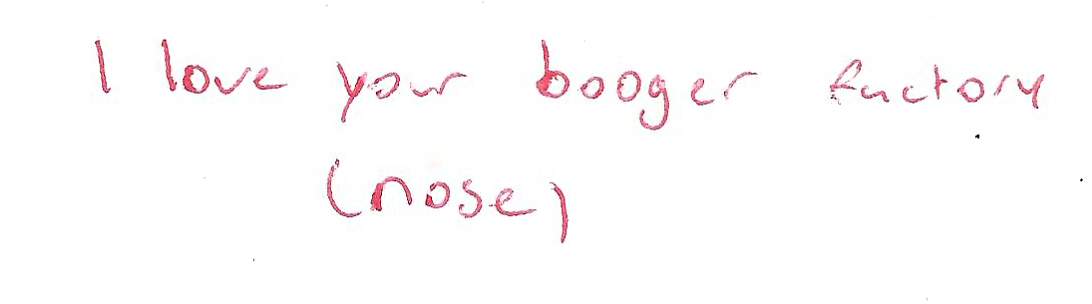 I love your booger factory
(nose)